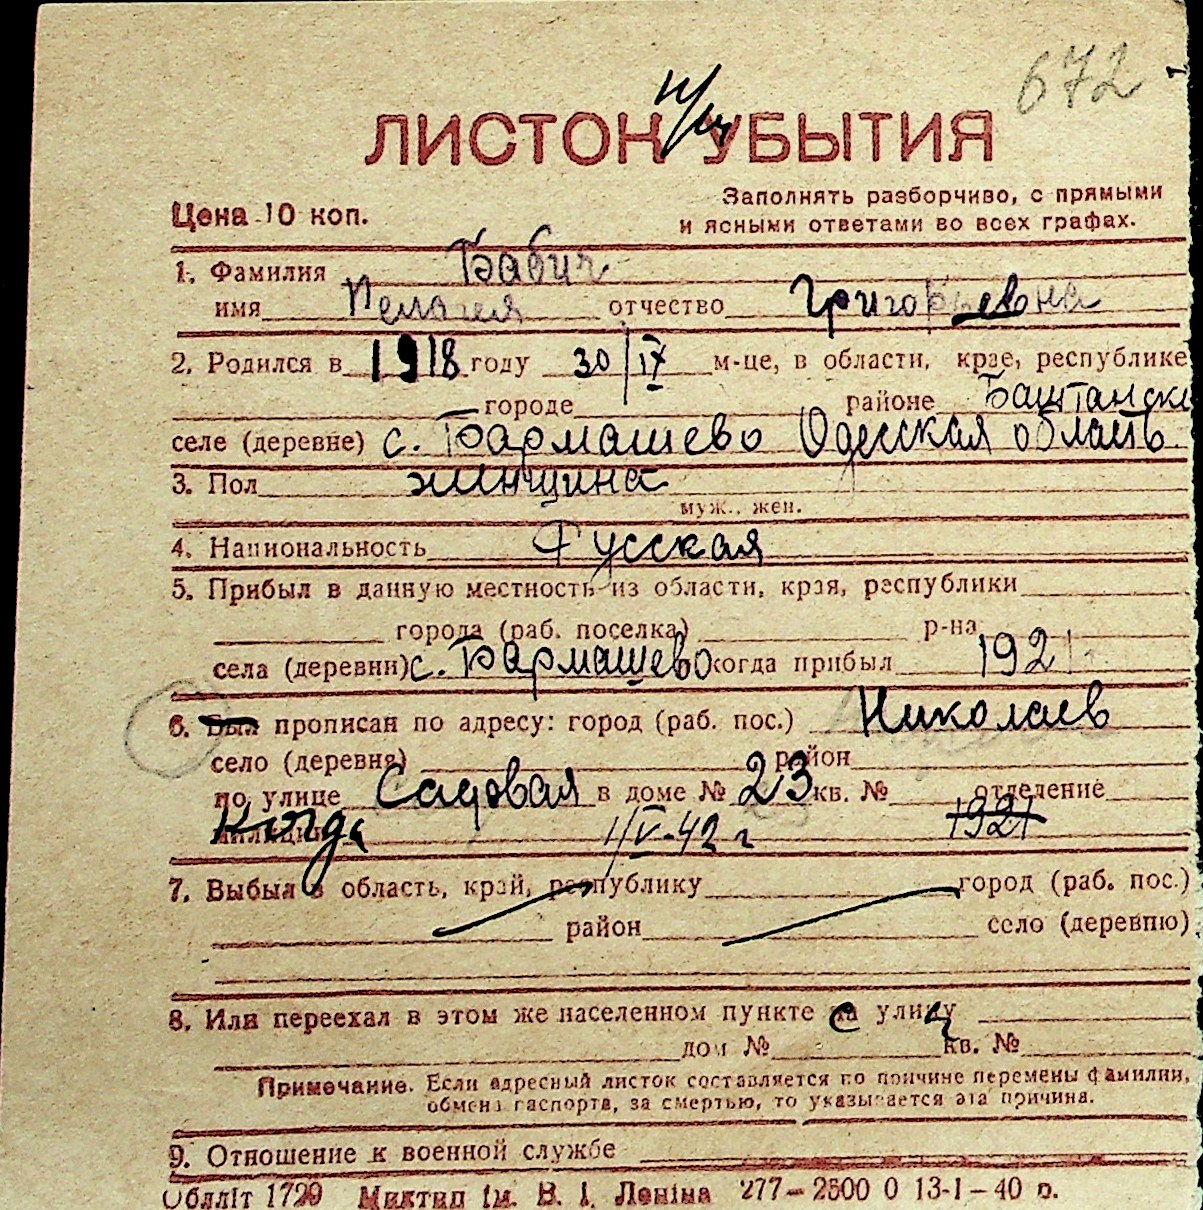 672
ЛИСТОК УБЫТИЯ
Заполнять разборчиво, с прямыми
Цена 10 коп. и ясными ответами во всех графах.
1. Фамилия Бабич
имя Пелагея отчество Григорьевна
2. Родился в 1918 году 30/IV м-це, в области, крае, республике
городе районе Баштански
селе (деревне) с. Бармашево Одесская область
3. Пол женщина
муж., жен.
4. Национальность Русская
5. Прибыл в данную местность из области, края, республики
города (раб. поселка) р-на
села (деревни) с. Бармашево когда прибыл 1921
6. Был прописан по адресу: город (раб. пос.) Николаев
село (деревня) район
по улице Садовая в доме № 23 кв. № отделение
милиции Когда 1/V-42 г 1921
7. Выбыл в область, край, республику город (раб. пос.)
район село (деревню)
8. Или переехал в этом же населенном пункте с улиц
дом № кв. №
Примечание. Если адресный листок составляется по причине перемены фамилии,
обмена паспорта, за смертью, то указывается эта причина.
9. Отношение к военной службе
Обллiт 1729 Миктип iм. В. I. Ленiна 277—2500 0 13-I—40 р.